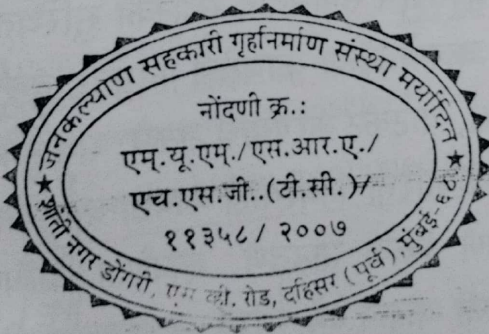 जनकल्याण सहकारी गृहनिर्माण संस्था मर्यादित
नोंदणी क्र.:
एम्.यू.एम्./एस.आर.ए./
एच.एस.जी..(टी.सी.)/
११३५८/ २००७
★ शांती नगर डोंगरी, एस व्ही. रोड, दहिसर (पूर्व), मुंबई-६८ ★